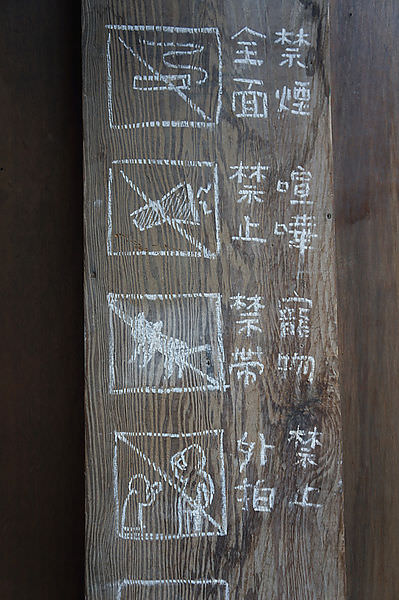 全面
禁煙
禁止
喧嘩
禁帶
寵物
外拍
禁止